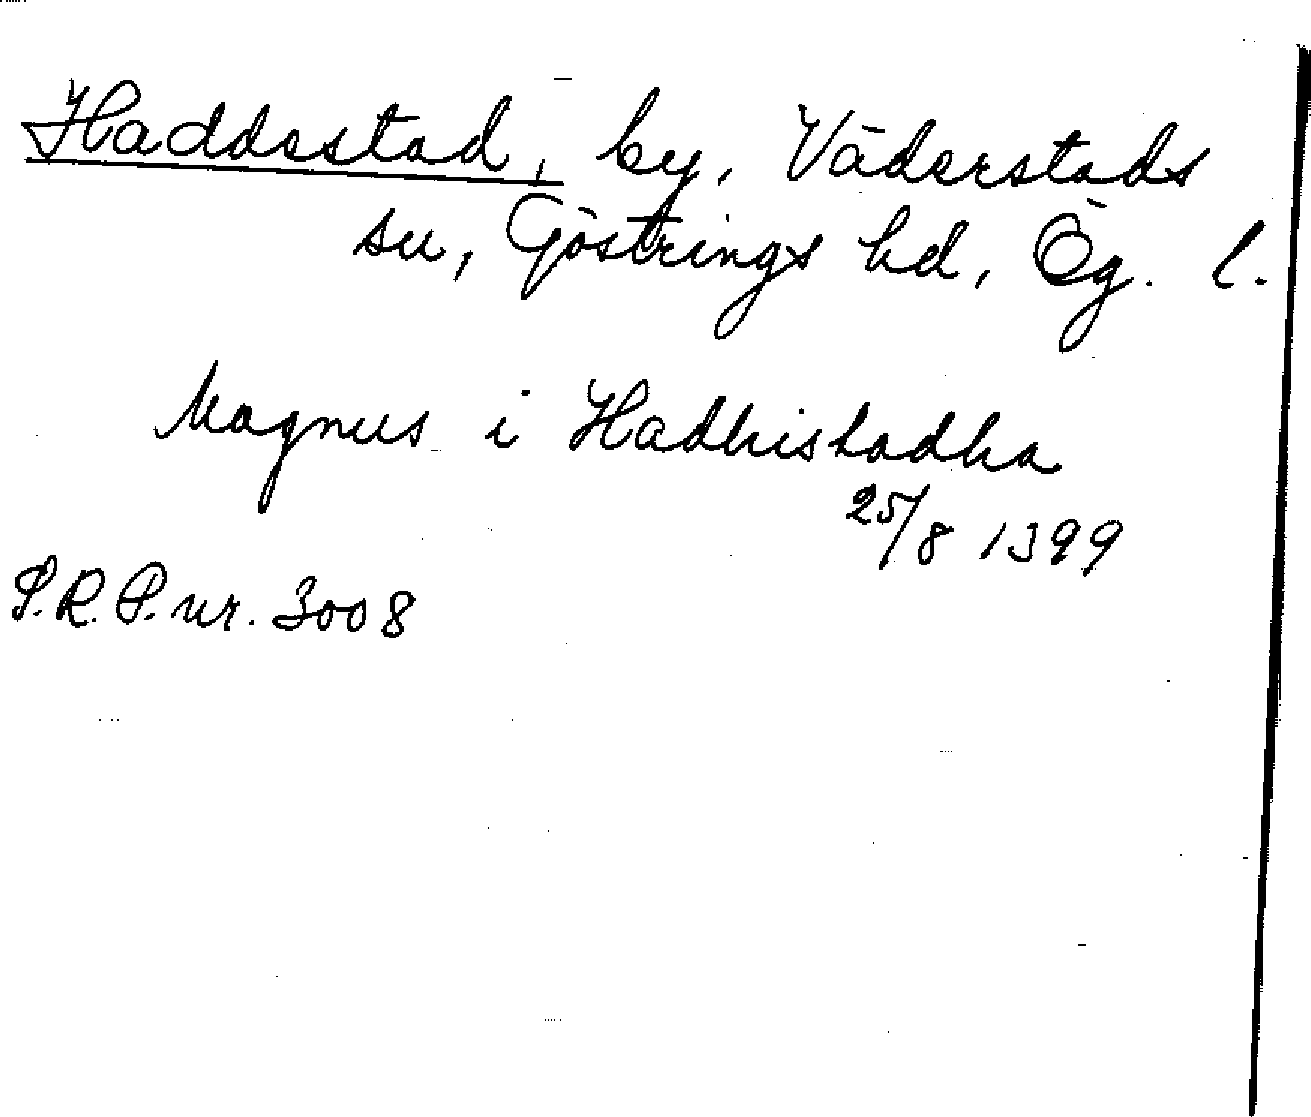 Haddestad, by, Väderstads
sn, Göstrings hd, Ög. l.
Magnus i Hadhistadha
25/8 1399
P.R.P. nr. 3008